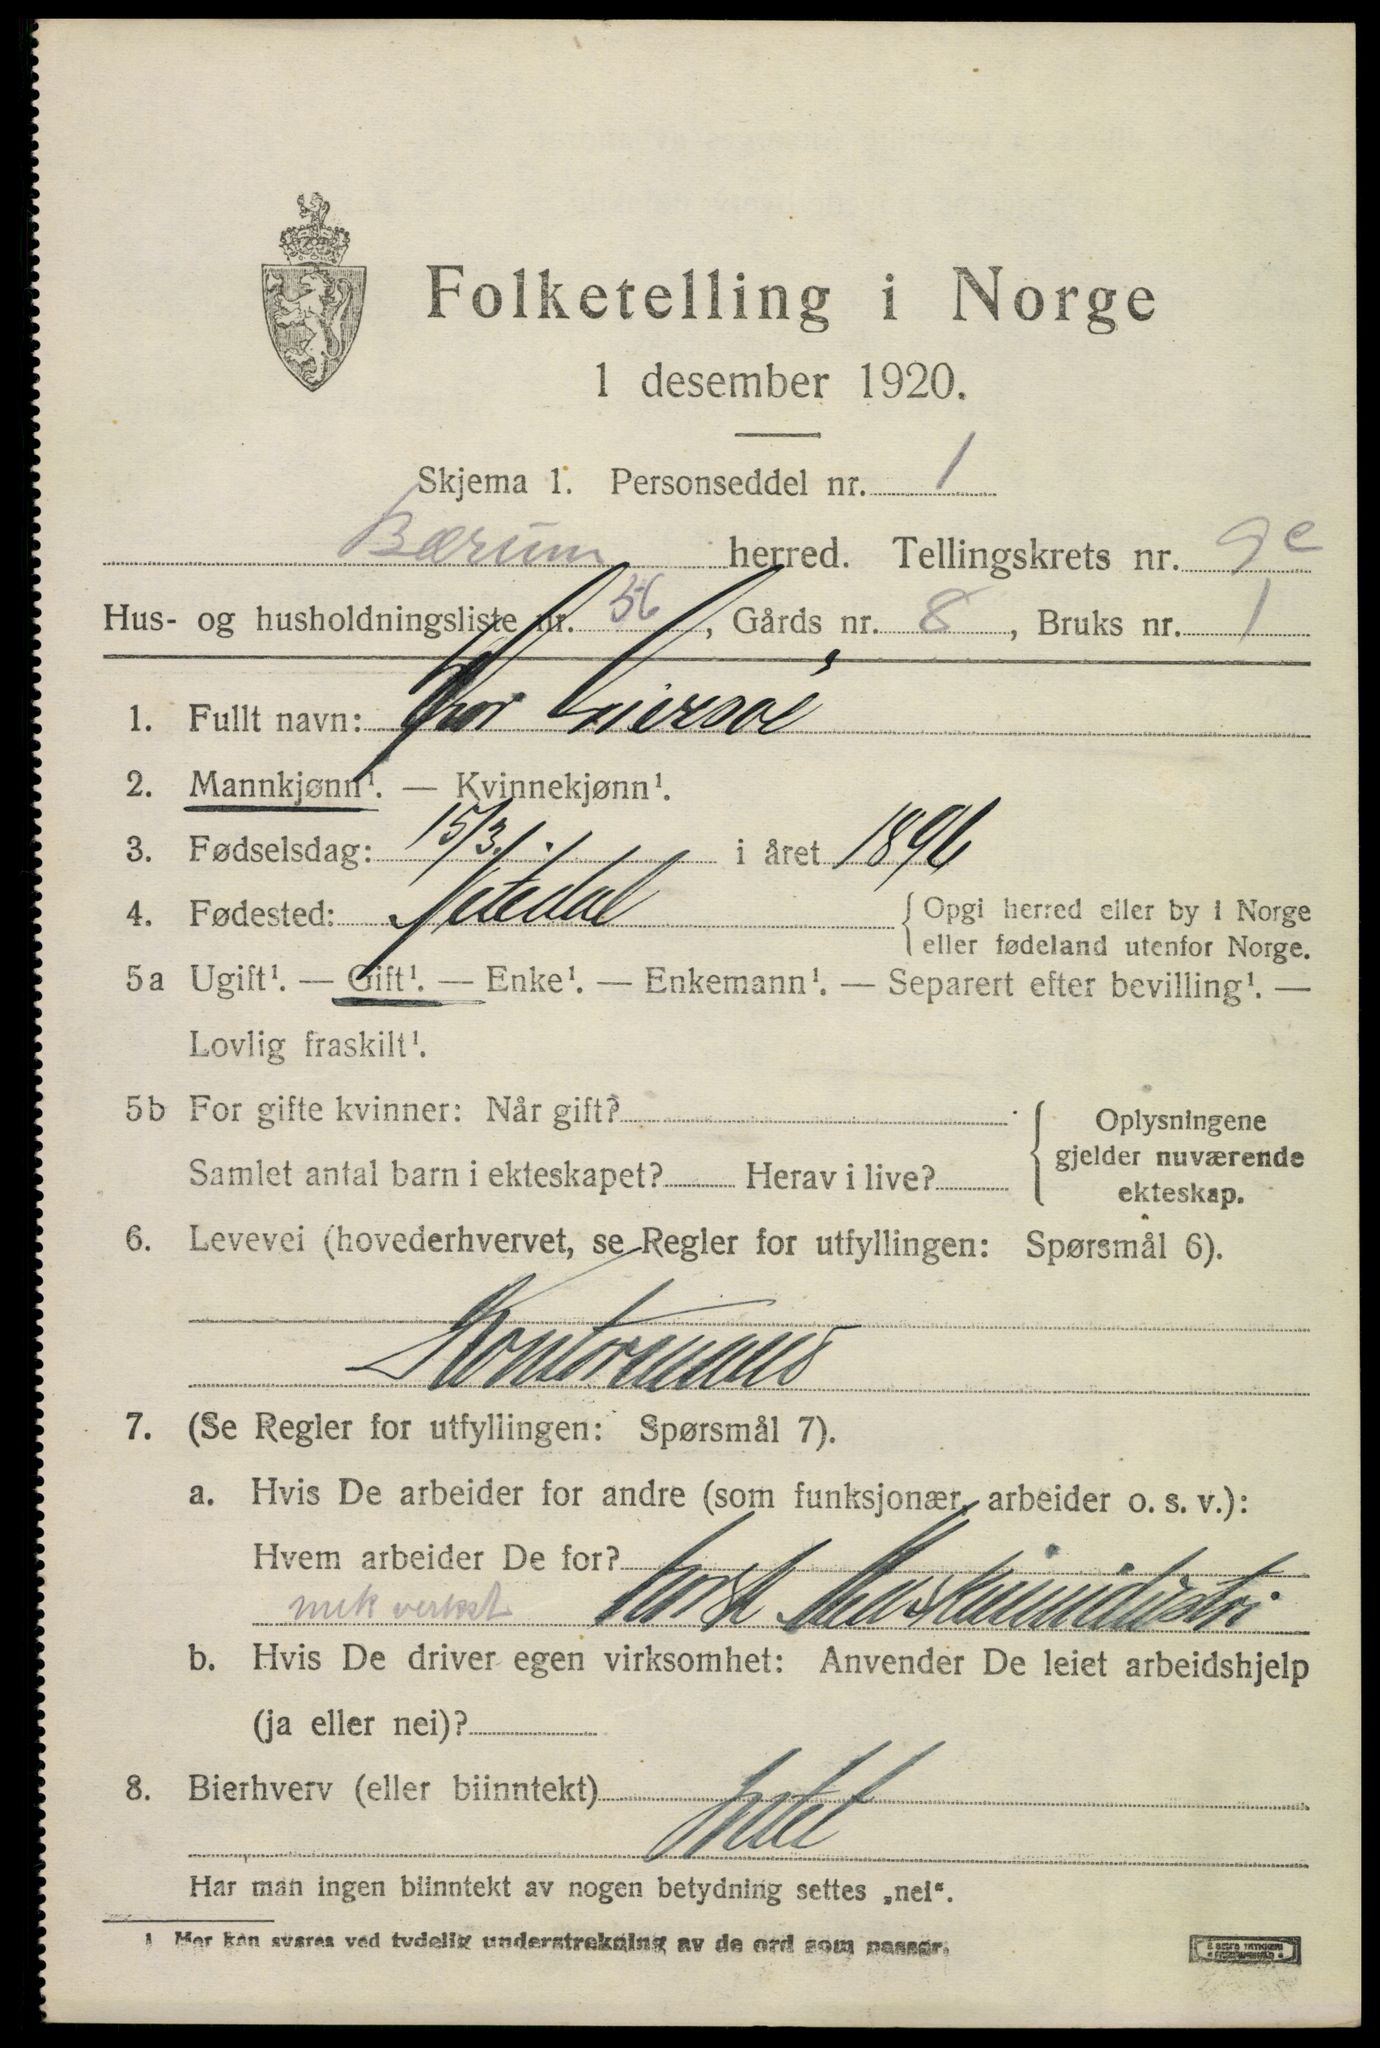 Folketelling i Norge
1 desember 1920.
Skjema 1. Personseddel nr. 1
Bærum herred. Tellingskrets nr. 9e
Hus- og husholdningsliste nr. 56, Gårds nr. 8, Bruks nr. 1
1. Fullt navn: Thor
2. Mannkjønn¹. — Kvinnekjønn¹.
3. Fødselsdag: 15/3. i året 1896
4. Fødested: Nitedal {Opgi herred eller by i Norge
eller fødeland utenfor Norge.
5a Ugift¹. — Gift¹. — Enke¹. — Enkemann¹. — Separert efter bevilling¹. —
Lovlig fraskilt¹.
5b For gifte kvinner: Når gift?
Samlet antal barn i ekteskapet? Herav i live?
{Oplysningene
gjelder nuværende
ekteskap.
6. Levevei (hovederhvervet, se Regler for utfyllingen: Spørsmål 6).
Kontormand
7. (Se Regler for utfyllingen: Spørsmål 7).
a. Hvis De arbeider for andre (som funksjonær, arbeider o. s. v.):
Hvem arbeider De for?
mek verkst Norsk Maskinindustri
b. Hvis De driver egen virksomhet: Anvender De leiet arbeidshjelp
(ja eller nei)?
8. Bierhverv (eller biinntekt)
Intet
Har man ingen biinntekt av nogen betydning settes „nei“.
1 Her kan svares ved tydelig understrekning av de ord som passer.